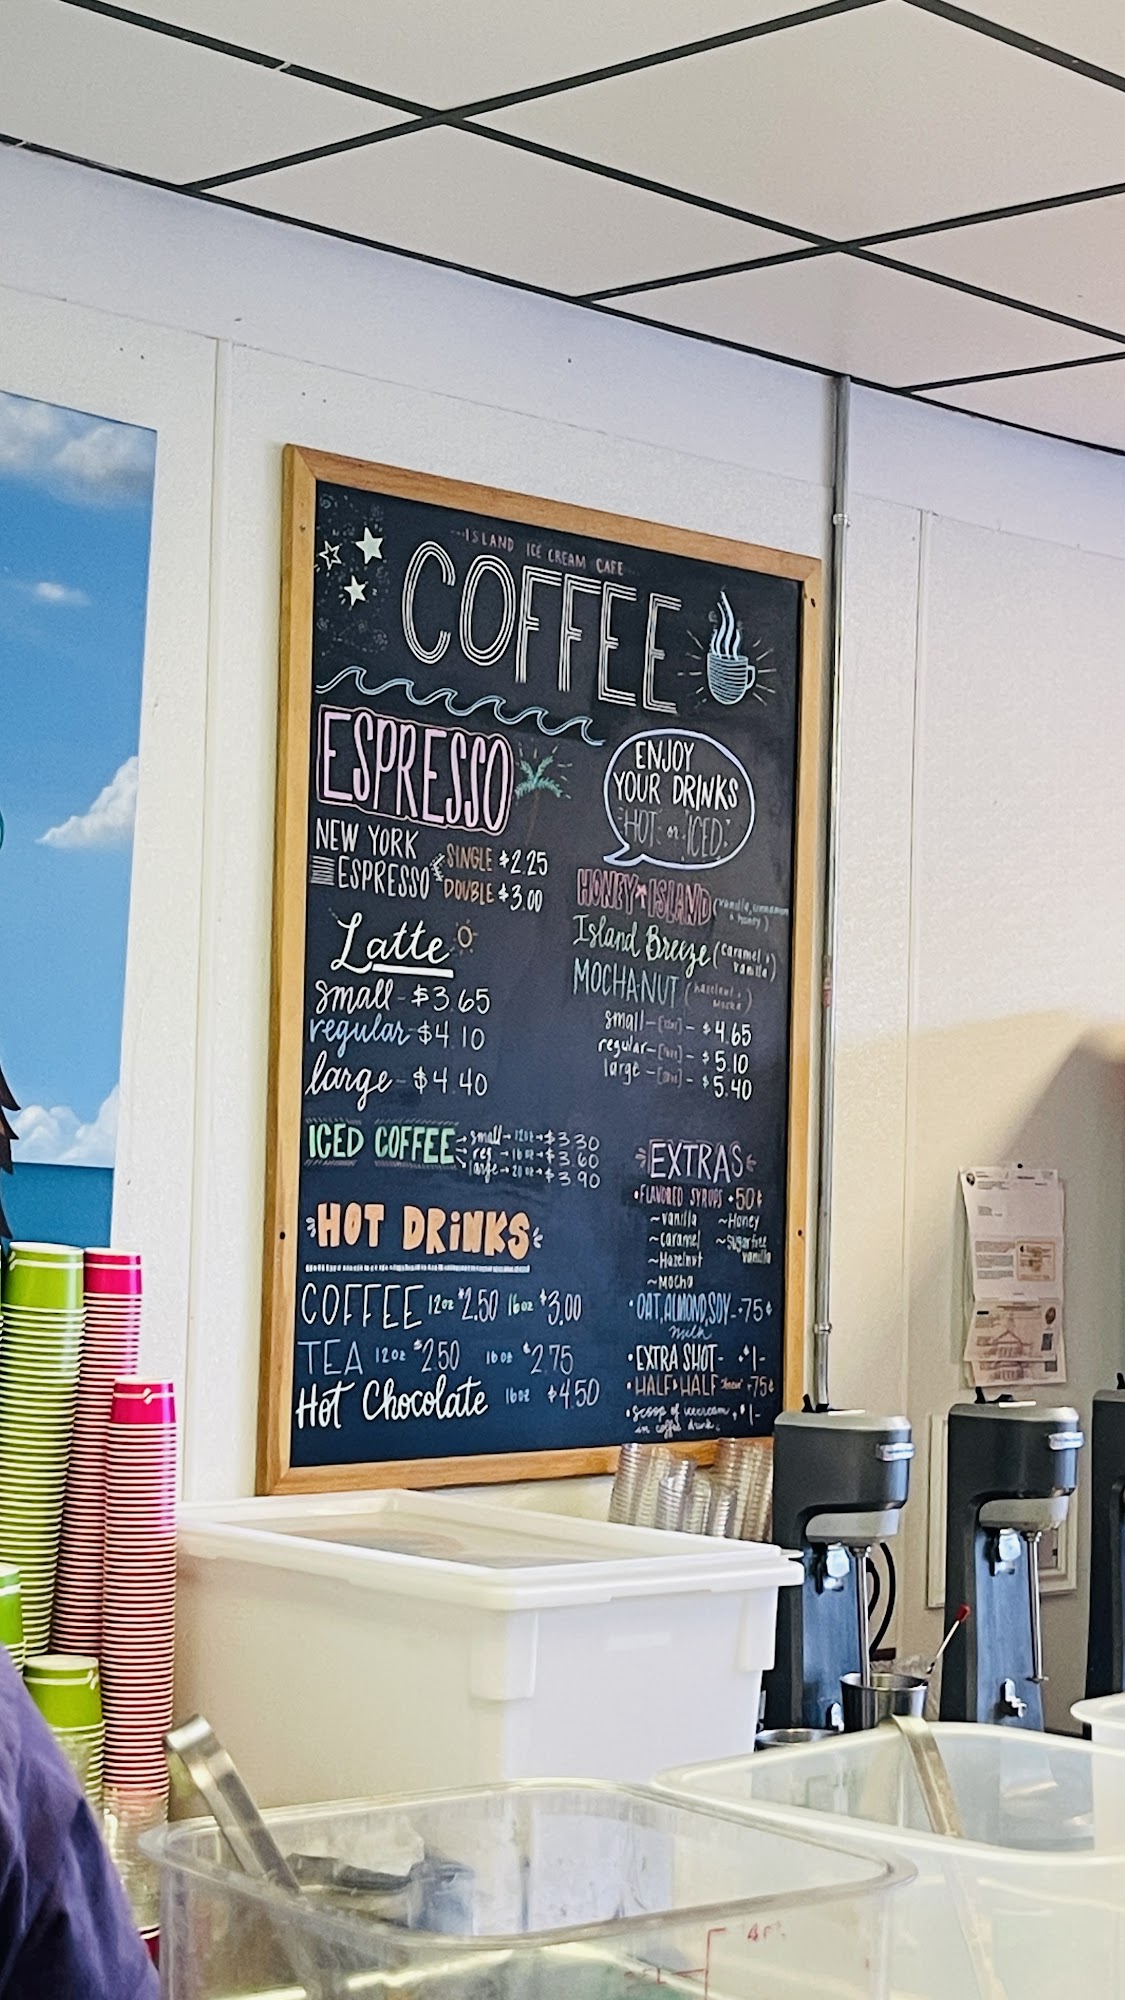 ISLAND ICE CREAM CAFE
COFFEE
ESPRESSO
NEW YORK
ESPRESSO
SINGLE $2.25
DOUBLE $3.00
Latte
small - $3.65
regular - $4.10
large - $4.40
ICED COFFEE
small → 12oz → $3.30
reg. → 16oz → $3.60
large → 20oz → $3.90
HOT DRINKS
COFFEE 12oz $2.50 16oz $3.00
TEA 12oz $2.50 16oz $2.75
Hot Chocolate 16oz $4.50
ENJOY
YOUR DRINKS
HOT or ICED
HONEY ISLAND (vanilla, cinnamon
& honey)
Island Breeze (caramel &
vanilla)
MOCHA-NUT (hazelnut &
mocha)
small - [12oz] - $4.65
regular - [16oz] - $5.10
large - [20oz] - $5.40
EXTRAS
• FLAVORED SYRUPS +50¢
~vanilla ~Honey
~caramel ~sugarfree
vanilla
~Hazelnut
~Mocha
• OAT, ALMOND, SOY - +75¢
milk
• EXTRA SHOT - +$1-
• HALF & HALF +75¢
• scoop of icecream +$1-
in coffee drink